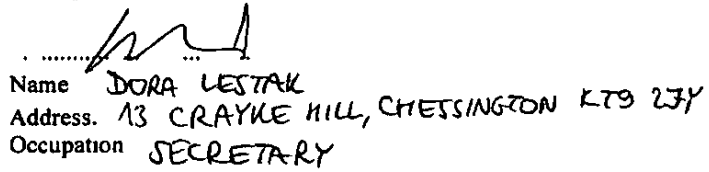 Name DORA LESTAK
Address. 13 CRAYKE HILL, CHESSINGTON KT9 2JY
Occupation SECRETARY